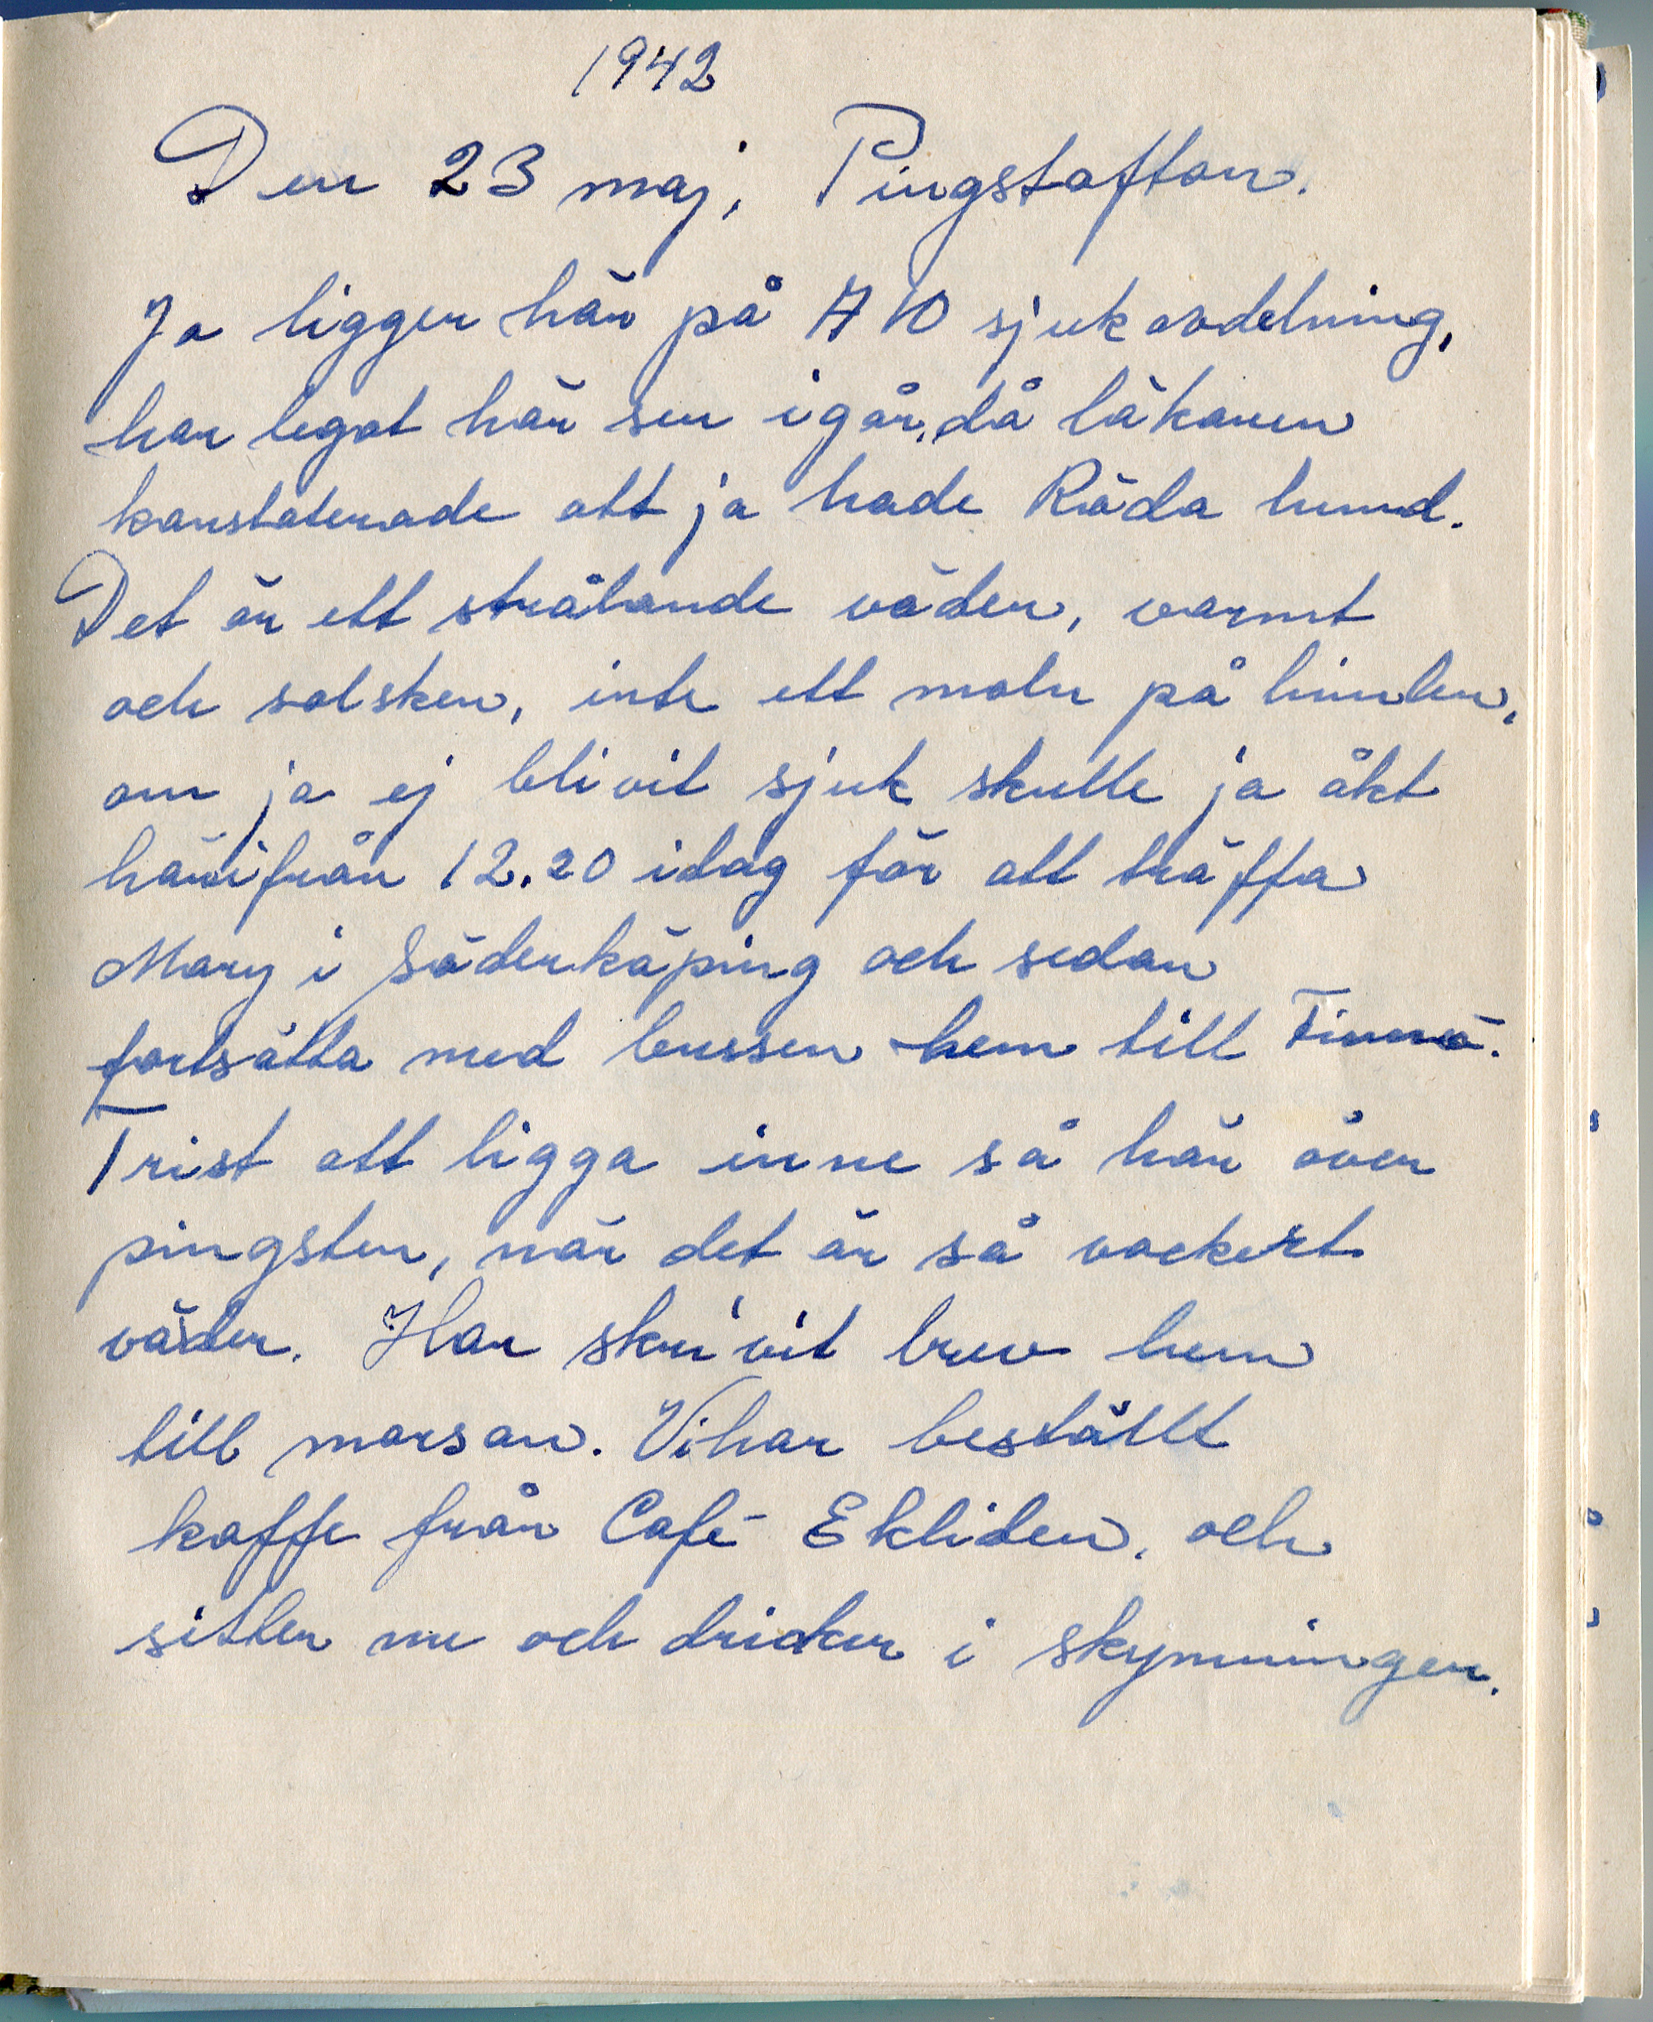 1942
Den 23 maj, Pingstafton.
Ja ligger här på A 10 sjukavdelning,
har legat här sen igår, då läkaren
konstaterade att ja hade Röda hund.
Det är ett strålande väder, varmt
och solsken, inte ett moln på himlen,
om ja ej blivit sjuk skulle ja åkt
härifrån 12.20 idag för att träffa
Mary i Söderköping och sedan
fortsätta med bussen hem till Finnö.
Trist att ligga inne så här över
pingsten, när det är så vackert
väder. Har skrivit brev hem
till morsan. Vi har beställt
kaffe från Café Ekliden, och
sitter nu och dricker i skymningen.